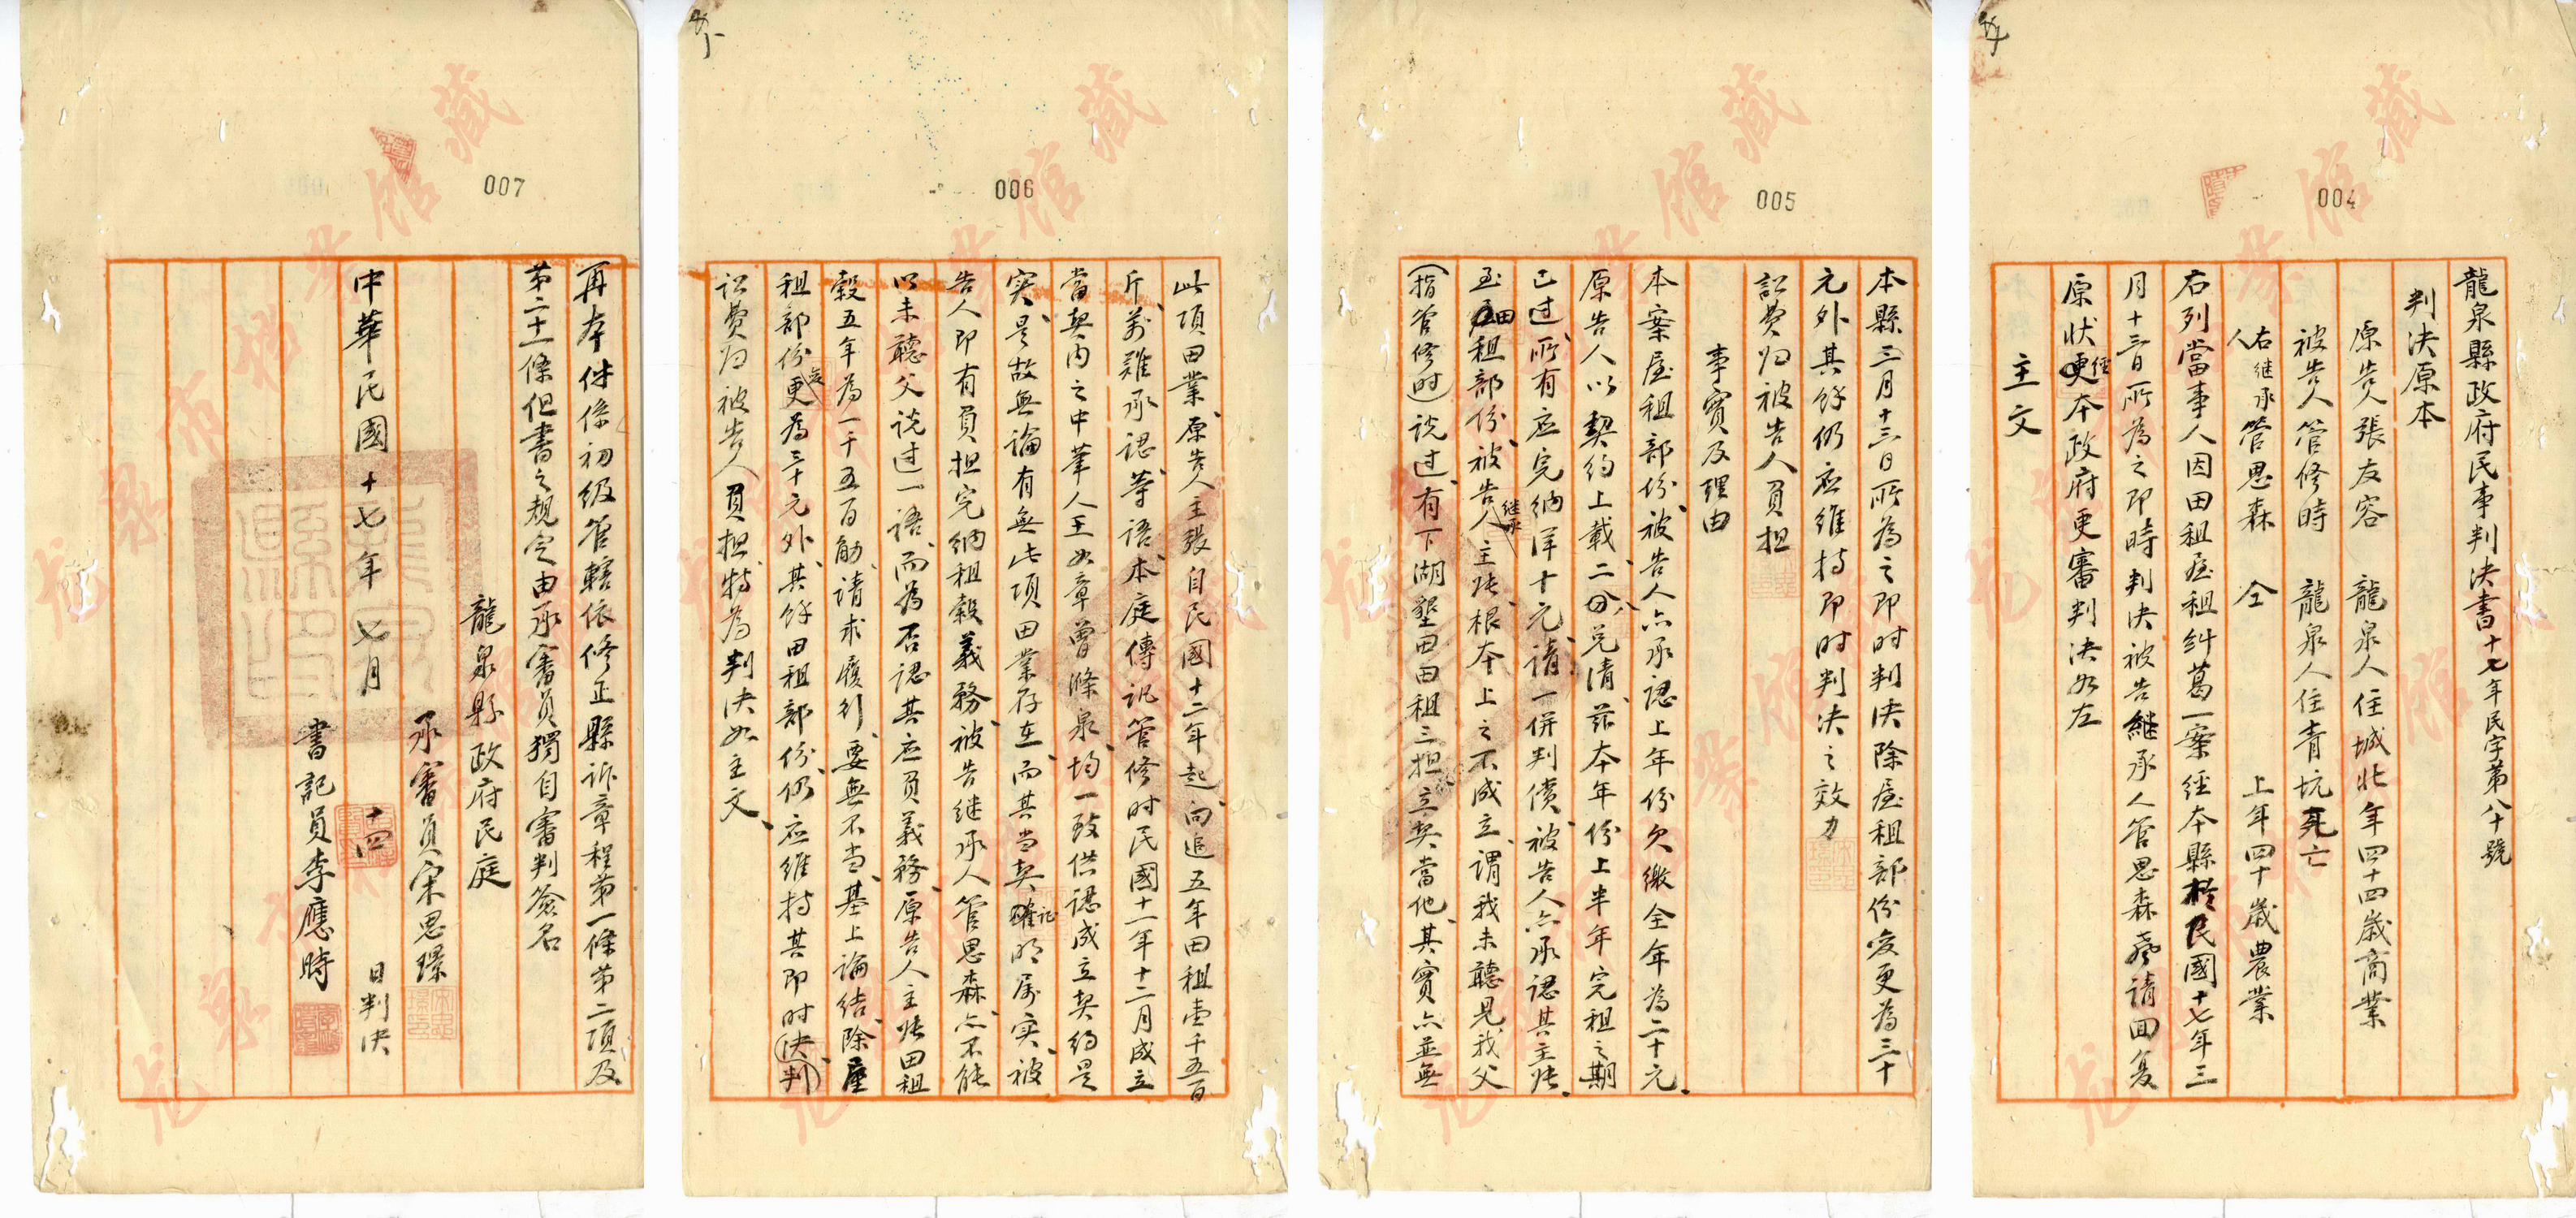 004
龍泉縣政府民事判決書十七年民字第八十號
判決原本
原告人張友容　龍泉人住城北年四十四歲商業
被告人管修時　龍泉人住青坑死亡
右継承人管思森　仝　上年四十歲農業
右列當事人因田租屋租糾葛一案經本縣於民國十七年三
月十三日所為之即時判決被告継承人管思森聲請回复
原狀經本政府更審判決如左
主文
005
本縣三月十三日所為之即时判決除屋租部份变更為三十
元外其餘仍应維持即时判決之效力
訟費归被告人負担
事實及理由
本案屋租部份、被告人亦承認上年份欠繳全年為二十元、
原告人以契約上載、二份兑清、茲本年份上半年完租之期
已过、所有应完納洋十元、請一併判償、被告人亦承認其主張、
至田租部份、被告継承人主張、根本上之不成立、謂我未聽見我父
（指管修时）说过、有下湖墾田田租三担立契當他、其實亦並無
006
此項田業、原告人主張自民國十二年起、向追五年田租壹千五百
斤、萬難承認等語、本庭傳訊管修时民國十一年十二月成立
當契内之中筆人王如章曾滌泉、均一致供認成立契約是
实、是故無論有無此項田業存在、而其當契証明属实、被
告人即有負担完納租穀義務、被告継承人管思森、亦不能
以未聽父说过一語、而為否認其应負義務、原告人主張田租
穀五年為一千五百觔、請求履行、要無不當、基上論結、除屋
租部份变更為三十元外、其餘田租部份、仍应維持其即时判決、
訟費归被告人負担、特為判決如主文、
007
再本件係初级管轄依修正縣訴章程第一條第二項及
第二十一條但書之规定由承審員獨自審判簽名
龍泉縣政府民庭
承審員宋思璟
中華民國十七年七月十四日判決
書記員李應時